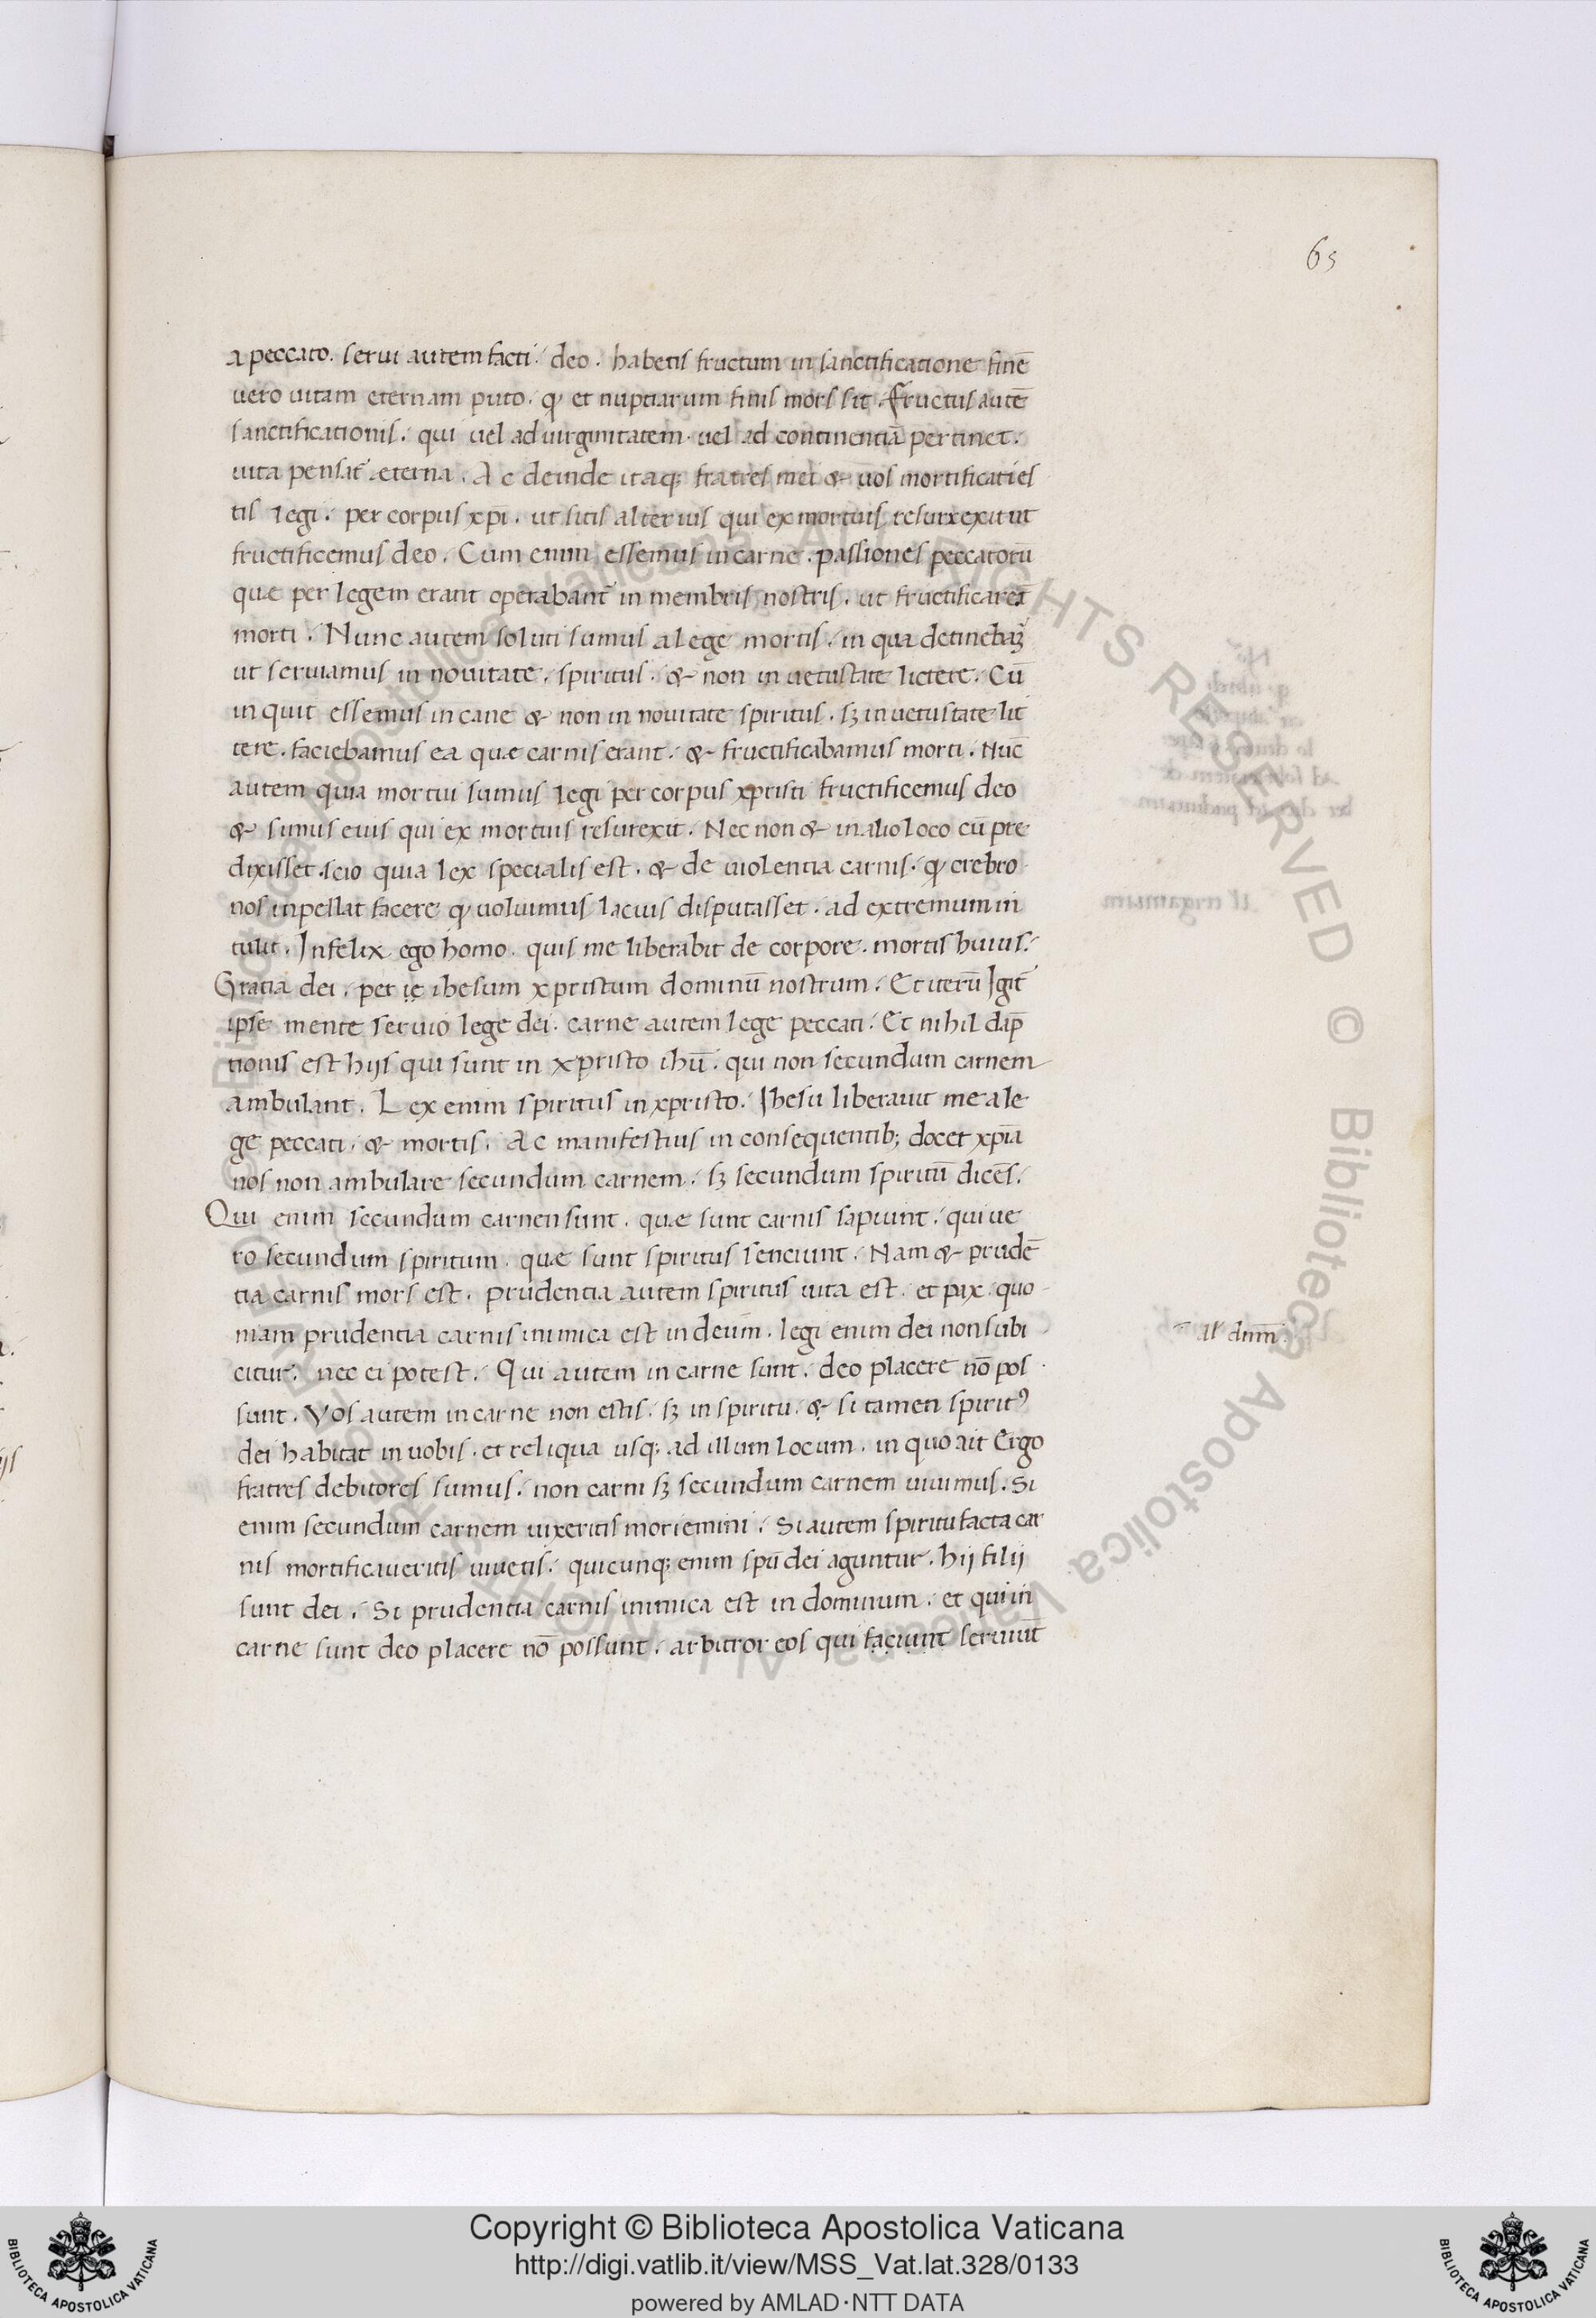 65
a peccato. serui autem facti. deo. habetis fructum in sanctificatione finē
uero uitam eternam puto. qꝫ et nuptiarum finis mors sit. Fructus autē
sanctificationis. qui uel ad uirginitatem. uel ad continentiā pertinet.
uita pensat᷑ æterna. Ac deinde itaqꝫ fratres mei & uos mortificati es
tis legi. per corpus xp̄i. ut sitis alterius qui ex mortuis resurrexit ut
fructificemus deo. Cum enim essemus in carne. passiones peccatorū
quæ per legem erant operabant᷑ in membris nostris. ut fructificarēt
morti. Nunc autem soluti sumus a lege mortis. in qua detinebaꝫ
ut seruiamus in nouitate. spiritus. & non in uetustate lictere. Cū
inquit essemus in cane & non in nouitate spiritus. sꝫ in uetustate lit
tere. faciebamus ea quæ carnis erant. & fructificabamus morti. Nūc
autem quia mortui sumus legi per corpus xpristi fructificemus deo
& simus eius qui ex mortuis resurexit. Nec non & in alio loco cū pre
dixisset. scio quia lex specialis est. & de uiolentia carnis. qꝫ crebro
nos inpellat facere qꝫ uoluimus lacius disputasset. ad extremum in
tulit. Infelix ego homo. quis me liberabit de corpore. mortis huius.
Gratia dei. per ie ihesum xpristum dominū nostrum. Et iterū Igit᷑
ipse mente seruio lege dei. carne autem lege peccati. Et nihil dāp
tionis est hijs qui sunt in xpristo ihū. qui non secundum carnem
ambulant. Lex enim spiritus in xpristo. Ihesu liberauit me a le
ge peccati. & mortis. Ac manifestius in consequentibꝫ docet xp̄ia
nos non ambulare secundum carnem. sꝫ secundum spiritū dicēs.
Qui enim secundum carnen sunt. quæ sunt carnis sapiunt. qui ue
ro secundum spiritum. quæ sunt spiritus senciunt. Nam & prudē
tia carnis mors est. prudentia autem spiritus uita est. et pax. quo
niam prudentia carnis inimica est in deum. legi enim dei non subi
citur. nec ei potest. Qui autem in carne sunt. deo placere nō pos
sunt. Vos autem in carne non estis. sꝫ in spiritu. & si tamen spiritꝰ
dei habitat in uobis. et reliqua usqꝫ ad illum locum. in quo ait Ergo
fratres debitores sumus. non carni sꝫ secundum carnem uiuimus. Si
enim secundum carnem uixeritis moriemini. Si autem spiritu facta car
nis mortificaueritis uiuetis. quicunqꝫ enim spū dei aguntur. hij filij
sunt dei. Si prudentia carnis inimica est in dominum. et qui in
carne sunt deo placere nō possunt. arbitror eos qui faciunt seruiūt
al' dnm̄
Copyright © Biblioteca Apostolica Vaticana
http://digi.vatlib.it/view/MSS_Vat.lat.328/0133
powered by AMLAD·NTT DATA
BIBLIOTECA APOSTOLICA VATICANA
BIBLIOTECA APOSTOLICA VATICANA